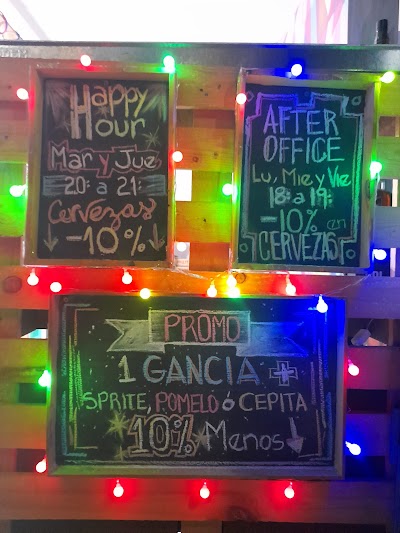 Happy
Hour
Mar y Jue
20: a 21:
Cervezas
↓ -10% ↓
AFTER
OFFICE
Lu, Mie y Vie
18: a 19:
-10% en
CERVEZAS
PROMO
1 GANCIA +
SPRITE, POMELÓ ó CEPITA
10% Menos ↓